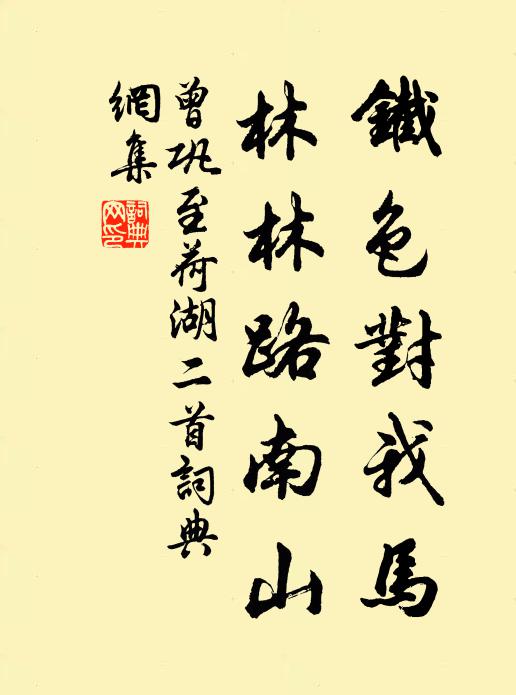 鐵色對我馬
林林路南山
曾巩至荷湖二首詞典
網集
詞典
网印